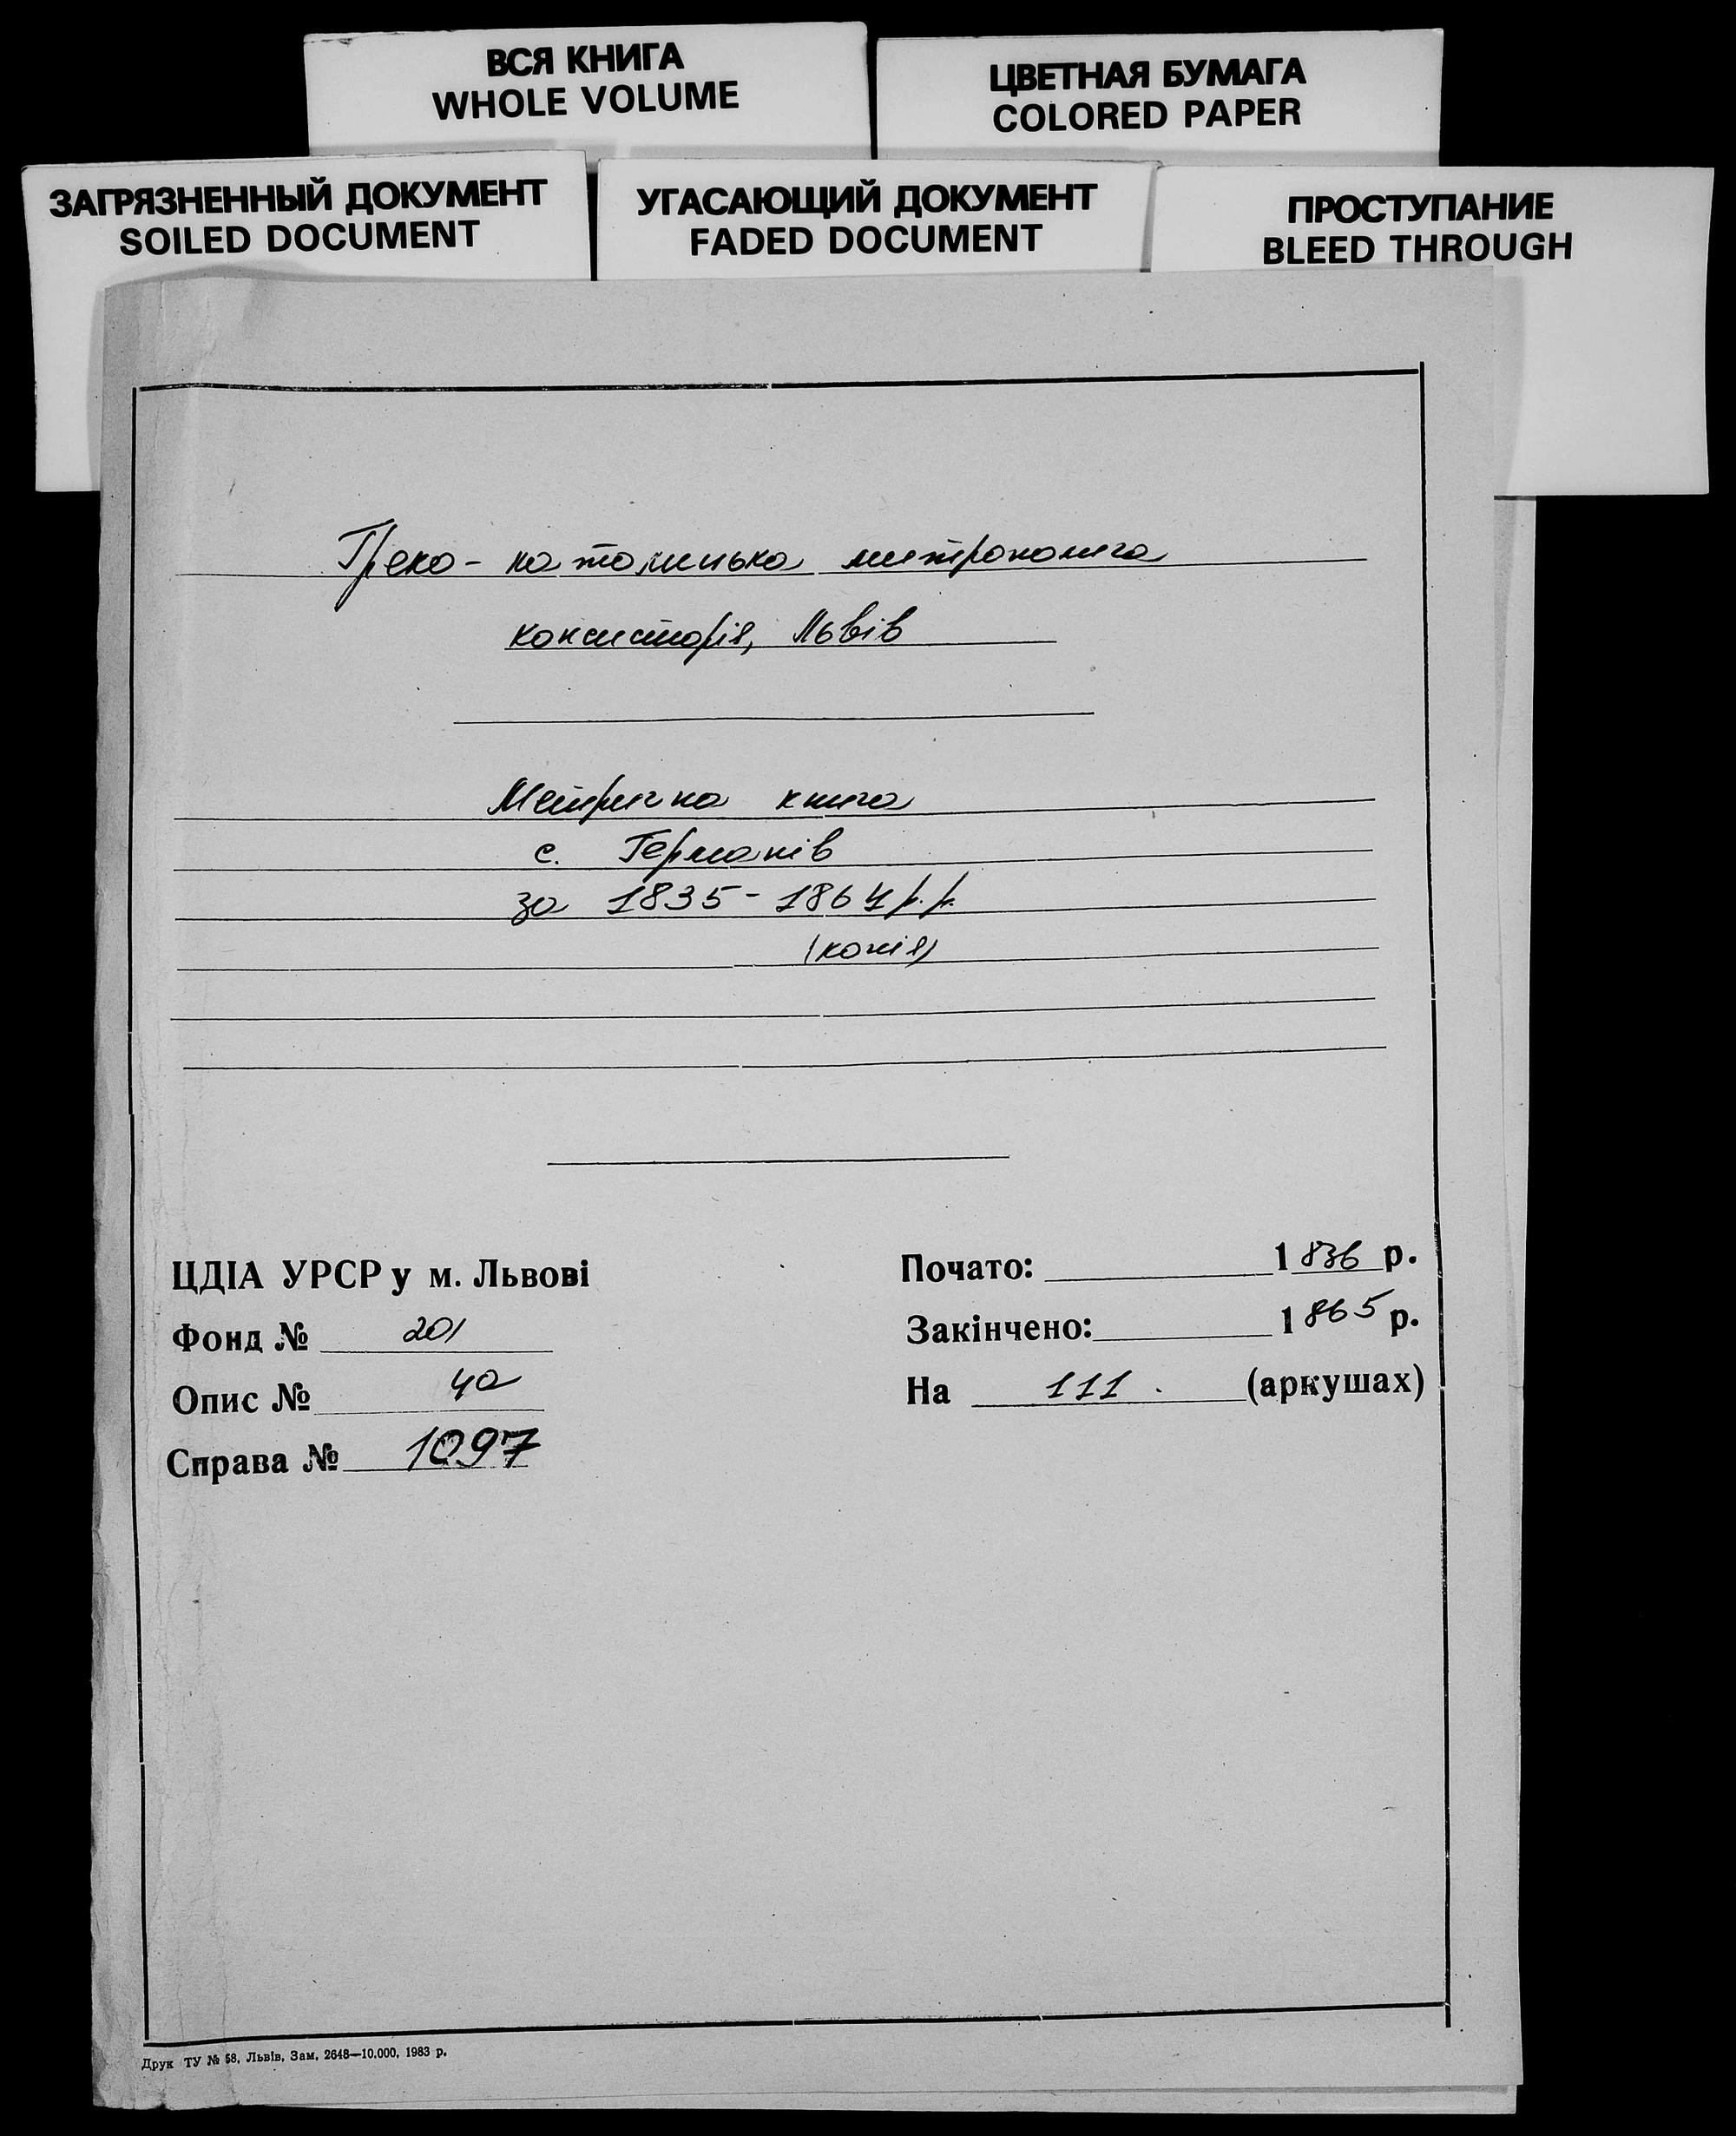 ВСЯ КНИГА
WHOLE VOLUME
ЦВЕТНАЯ БУМАГА
COLORED PAPER
ЗАГРЯЗНЕННЫЙ ДОКУМЕНТ
SOILED DOCUMENT
УГАСАЮЩИЙ ДОКУМЕНТ
FADED DOCUMENT
ПРОСТУПАНИЕ
BLEED THROUGH
Греко-католицька митрополича
консисторія, Львів
Метрична книга
с. Германів
за 1835-1864 р.р.
(копія)
ЦДІА УРСР у м. Львові
Фонд № 201
Опис № 4а
Справа № 1097
Почато: 1836 р.
Закінчено: 1865 р.
На 111. (аркушах)
Друк ТУ № 58, Львів, Зам. 2648—10.000, 1983 р.